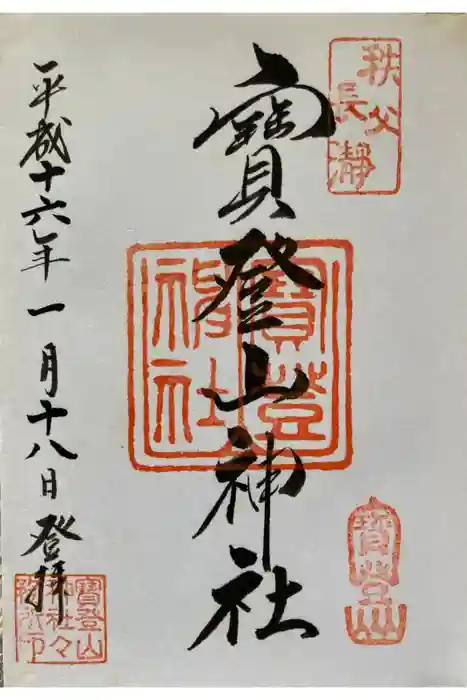 秩父
長瀞
寳登山神社
寳登
神社
寳登山
平成十六年一月十八日登拝
寳登山
神社々
務所印